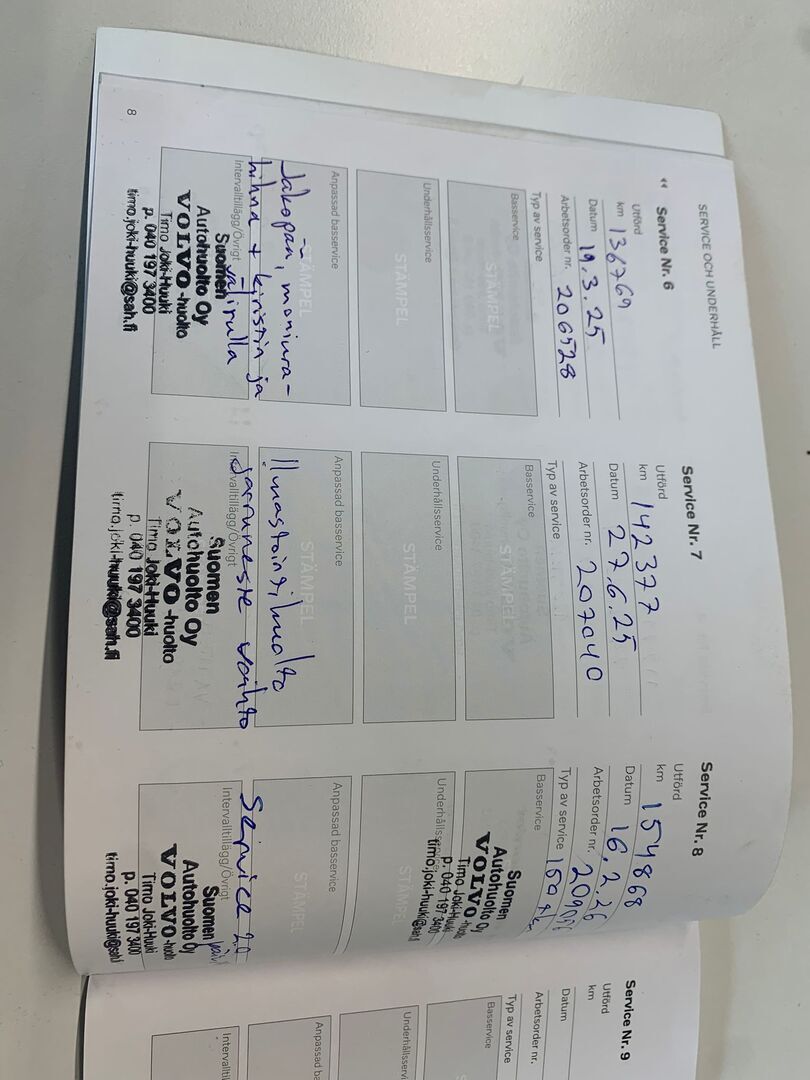 SERVICE OCH UNDERHÅLL
Service Nr. 6
Utförd
km 136769
Datum 19.3.25
Arbetsorder nr. 206528
Typ av service
Basservice
STÄMPEL
Underhållsservice
STÄMPEL
Anpassad basservice
STÄMPEL
Jakopää, moniura-
hihna + kiristin ja
Intervalltillägg/Övrigt
Suomen
Autohuolto Oy
VOLVO -huolto
Timo Joki-Huuki
p. 040 197 3400
timo.joki-huuki@sah.fi
Service Nr. 7
Utförd
km 142377
Datum 27.6.25
Arbetsorder nr. 207040
Typ av service
Basservice
STÄMPEL
Underhållsservice
STÄMPEL
Anpassad basservice
STÄMPEL
Ilmastointihuolto
Jarruneste vaihto
Intervalltillägg/Övrigt
Suomen
Autohuolto Oy
VOLVO -huolto
Timo Joki-Huuki
p. 040 197 3400
timo.joki-huuki@sah.fi
Service Nr. 8
Utförd
km 154868
Datum 16.2.26
Arbetsorder nr.
Typ av service
Basservice
Suomen
Autohuolto Oy
VOLVO -huolto
Timo Joki-Huuki
p. 040 197 3400
timo.joki-huuki@sah.fi
Underhållsservice
STÄMPEL
Anpassad basservice
STÄMPEL
Service 2.0
Intervalltillägg/Övrigt
Suomen
Autohuolto Oy
VOLVO -huolto
Timo Joki-Huuki
p. 040 197 3400
timo.joki-huuki@sah.fi
8
Service Nr. 9
Utförd
km
Datum
Arbetsorder nr.
Typ av service
Basservice
Underhållsservice
Anpassad basservice
Intervalltillägg